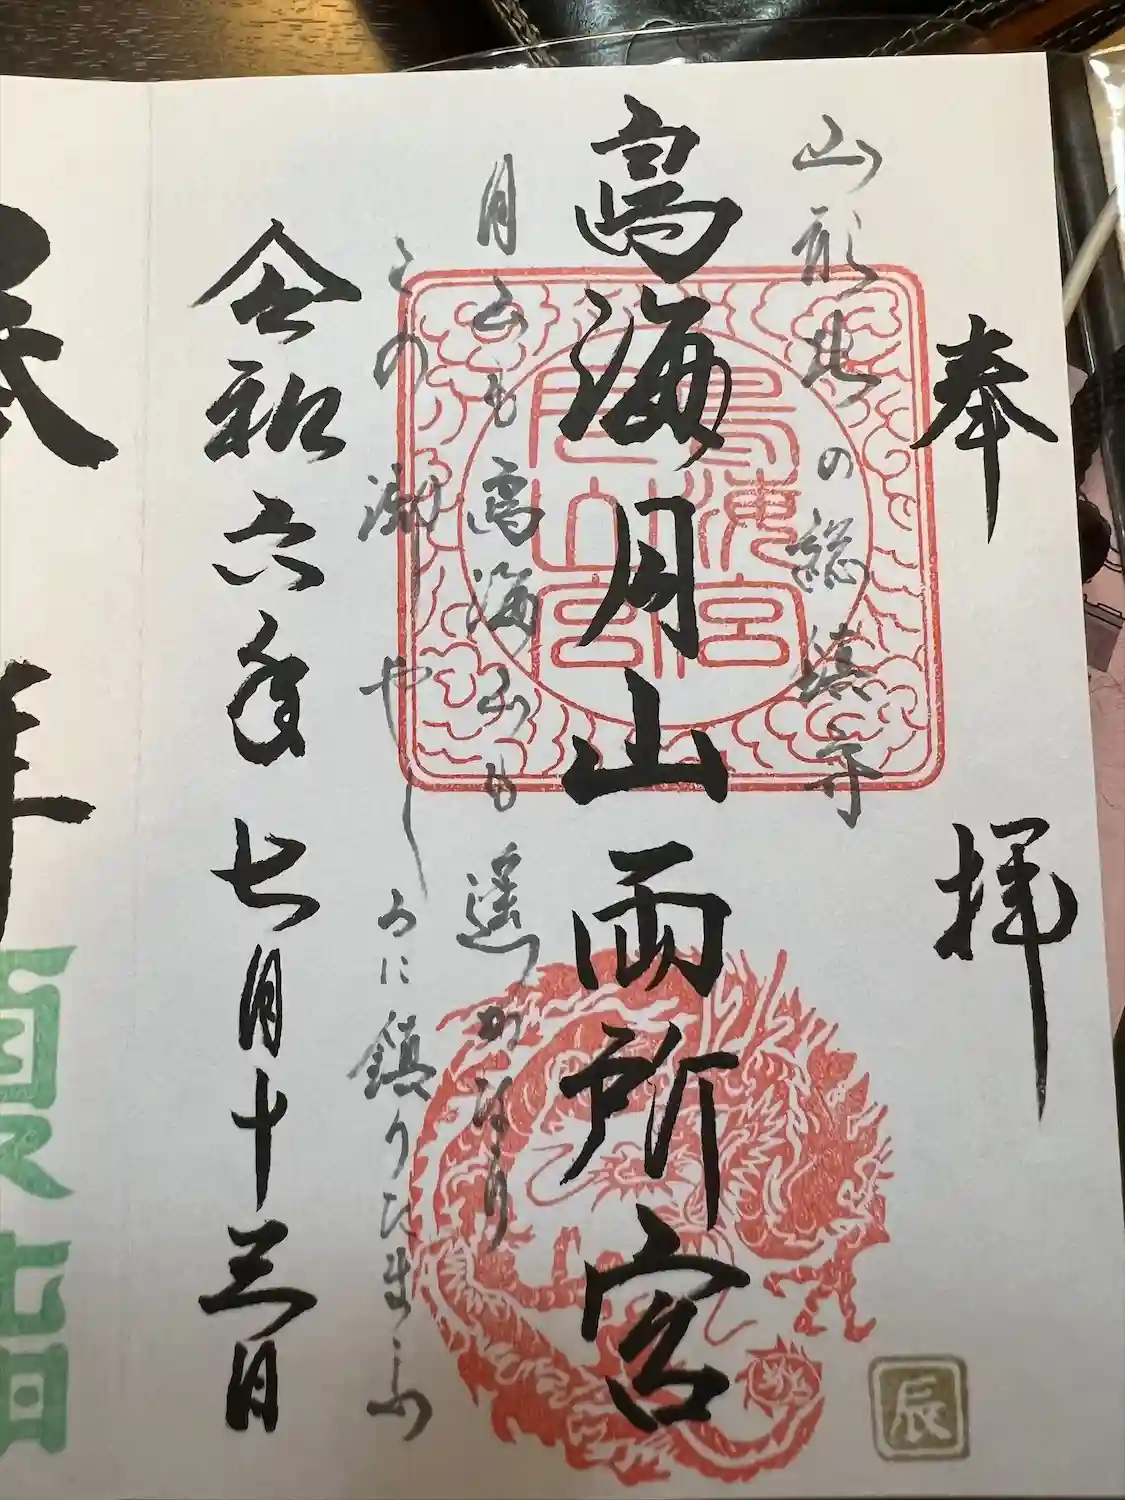 奉拝
山形北の総鎮守
鳥海月山両所宮
月山も鳥海山も遥かなり
この御やしろに鎮りたまふ
令和六年七月十三日
鳥海宮
月山宮
辰